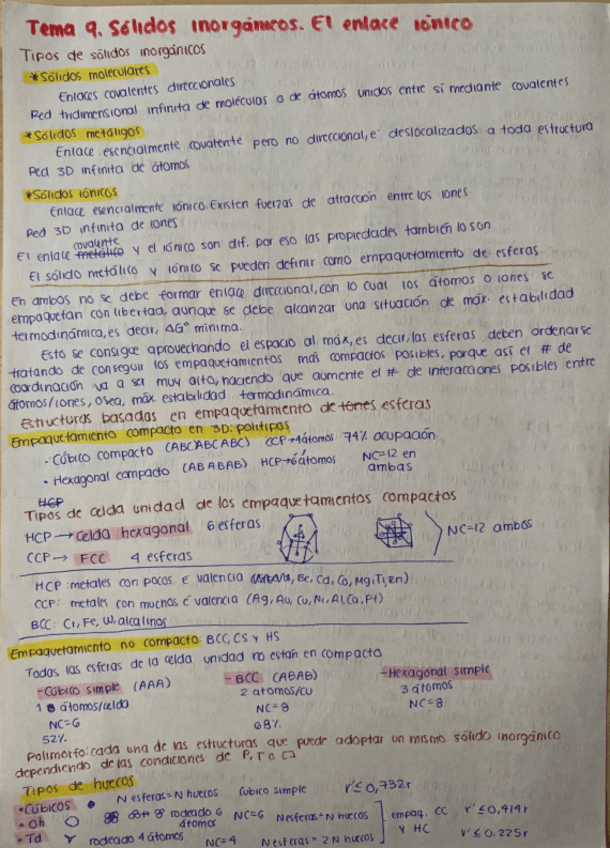 Tema 9. Sólidos inorgánicos. El enlace iónico
Tipos de sólidos inorgánicos
*Sólidos moleculares
Enlaces covalentes direccionales
Red tridimensional infinita de moléculas o de átomos unidos entre sí mediante covalentes
*Sólidos metáligos
Enlace esencialmente covalente pero no direccional, e⁻ deslocalizados a toda estructura
Red 3D infinita de átomos
*Sólidos iónicos
Enlace esencialmente iónico. Existen fuerzas de atracción entre los iones
Red 3D infinita de iones
covalente
El enlace metálico y el iónico son dif. por eso las propiedades también lo son
El sólido metálico y iónico se pueden definir como empaquetamiento de esferas
En ambos no se debe formar enlace direccional, con lo cual los átomos o iones se
empaquetan con libertad, aunque se debe alcanzar una situación de máx. estabilidad
termodinámica, es decir, ΔG° mínima.
Esto se consigue aprovechando el espacio al máx, es decir, las esferas deben ordenarse
tratando de conseguir los empaquetamientos más compactos posibles, porque así el # de
coordinación va a ser muy alto, haciendo que aumente el # de interacciones posibles entre
átomos/iones, osea, máx estabilidad termodinámica.
Estructuras basadas en empaquetamiento de iones esferas
Empaquetamiento compacto en 3D: politipos
· Cúbico compacto (ABCABCABC) CCP→4átomos 74% ocupación
· Hexagonal compacto (ABABAB) HCP→6átomos NC=12 en ambas
HCP
Tipos de celda unidad de los empaquetamientos compactos
HCP → celda hexagonal 6 esferas
NC=12 ambos
CCP → FCC 4 esferas
HCP: metales con pocos e⁻ valencia Be, Cd, Co, Mg, Ti, Zn)
CCP: metales con muchos e⁻ valencia (Ag, Au, Cu, Ni, Al, Ca, Pt)
BCC: Cr, Fe, W, alcalinos
Empaquetamiento no compacto: BCC, CS y HS
Todas las esferas de la celda unidad no están en compacto
-Cúbico simple (AAA) -BCC (ABAB) -Hexagonal simple
1 átomos/celda 2 atomos/cu 3 átomos
NC=6 NC=8 NC=8
52% 68%
Polimorfo: cada una de las estructuras que puede adoptar un mismo sólido inorgánico
dependiendo de las condiciones de P, T o
Tipos de huecos
•Cúbicos N esferas=N huecos Cubico simple r'≤0,732r
•Oh rodeado 6 átomos NC=6 N esferas=N huecos empaq. CC r'≤0,414r
•Td rodeado 4 átomos NC=4 N esferas=2N huecos y HC r'≤0.225r